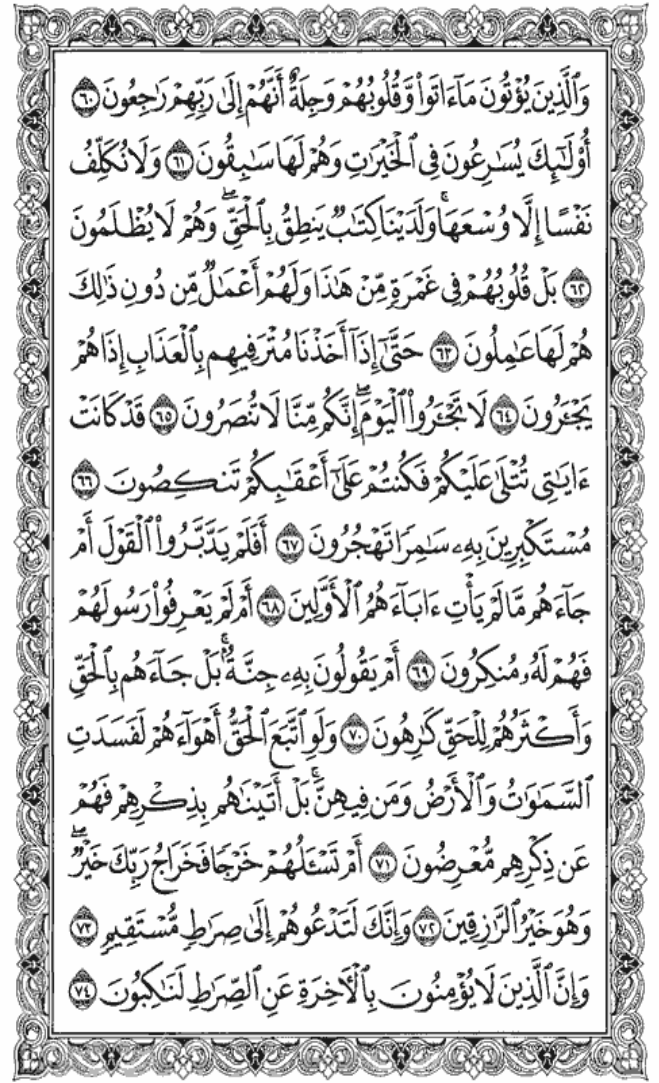 وَٱلَّذِينَ يُؤْتُونَ مَآ ءَاتَوا۟ وَّقُلُوبُهُمْ وَجِلَةٌ أَنَّهُمْ إِلَىٰ رَبِّهِمْ رَٰجِعُونَ ٦٠
أُو۟لَـٰٓئِكَ يُسَـٰرِعُونَ فِى ٱلْخَيْرَٰتِ وَهُمْ لَهَا سَـٰبِقُونَ ٦١ وَلَا نُكَلِّفُ
نَفْسًا إِلَّا وُسْعَهَا ۚ وَلَدَيْنَا كِتَـٰبٌ يَنطِقُ بِٱلْحَقِّ ۖ وَهُمْ لَا يُظْلَمُونَ
٦٢ بَلْ قُلُوبُهُمْ فِى غَمْرَةٍ مِّنْ هَـٰذَا وَلَهُمْ أَعْمَـٰلٌ مِّن دُونِ ذَٰلِكَ
هُمْ لَهَا عَـٰمِلُونَ ٦٣ حَتَّىٰٓ إِذَآ أَخَذْنَا مُتْرَفِيهِم بِٱلْعَذَابِ إِذَا هُمْ
يَجْـَٔرُونَ ٦٤ لَا تَجْـَٔرُوا۟ ٱلْيَوْمَ ۖ إِنَّكُم مِّنَّا لَا تُنصَرُونَ ٦٥ قَدْ كَانَتْ
ءَايَـٰتِى تُتْلَىٰ عَلَيْكُمْ فَكُنتُمْ عَلَىٰٓ أَعْقَـٰبِكُمْ تَنكِصُونَ ٦٦
مُسْتَكْبِرِينَ بِهِۦ سَـٰمِرًا تَهْجُرُونَ ٦٧ أَفَلَمْ يَدَّبَّرُوا۟ ٱلْقَوْلَ أَمْ
جَآءَهُم مَّا لَمْ يَأْتِ ءَابَآءَهُمُ ٱلْأَوَّلِينَ ٦٨ أَمْ لَمْ يَعْرِفُوا۟ رَسُولَهُمْ
فَهُمْ لَهُۥ مُنكِرُونَ ٦٩ أَمْ يَقُولُونَ بِهِۦ جِنَّةٌۢ ۚ بَلْ جَآءَهُم بِٱلْحَقِّ
وَأَكْثَرُهُمْ لِلْحَقِّ كَـٰرِهُونَ ٧٠ وَلَوِ ٱتَّبَعَ ٱلْحَقُّ أَهْوَآءَهُمْ لَفَسَدَتِ
ٱلسَّمَـٰوَٰتُ وَٱلْأَرْضُ وَمَن فِيهِنَّ ۚ بَلْ أَتَيْنَـٰهُم بِذِكْرِهِمْ فَهُمْ
عَن ذِكْرِهِم مُّعْرِضُونَ ٧١ أَمْ تَسْـَٔلُهُمْ خَرْجًا فَخَرَاجُ رَبِّكَ خَيْرٌ ۖ
وَهُوَ خَيْرُ ٱلرَّٰزِقِينَ ٧٢ وَإِنَّكَ لَتَدْعُوهُمْ إِلَىٰ صِرَٰطٍ مُّسْتَقِيمٍ ٧٣
وَإِنَّ ٱلَّذِينَ لَا يُؤْمِنُونَ بِٱلْـَٔاخِرَةِ عَنِ ٱلصِّرَٰطِ لَنَـٰكِبُونَ ٧٤